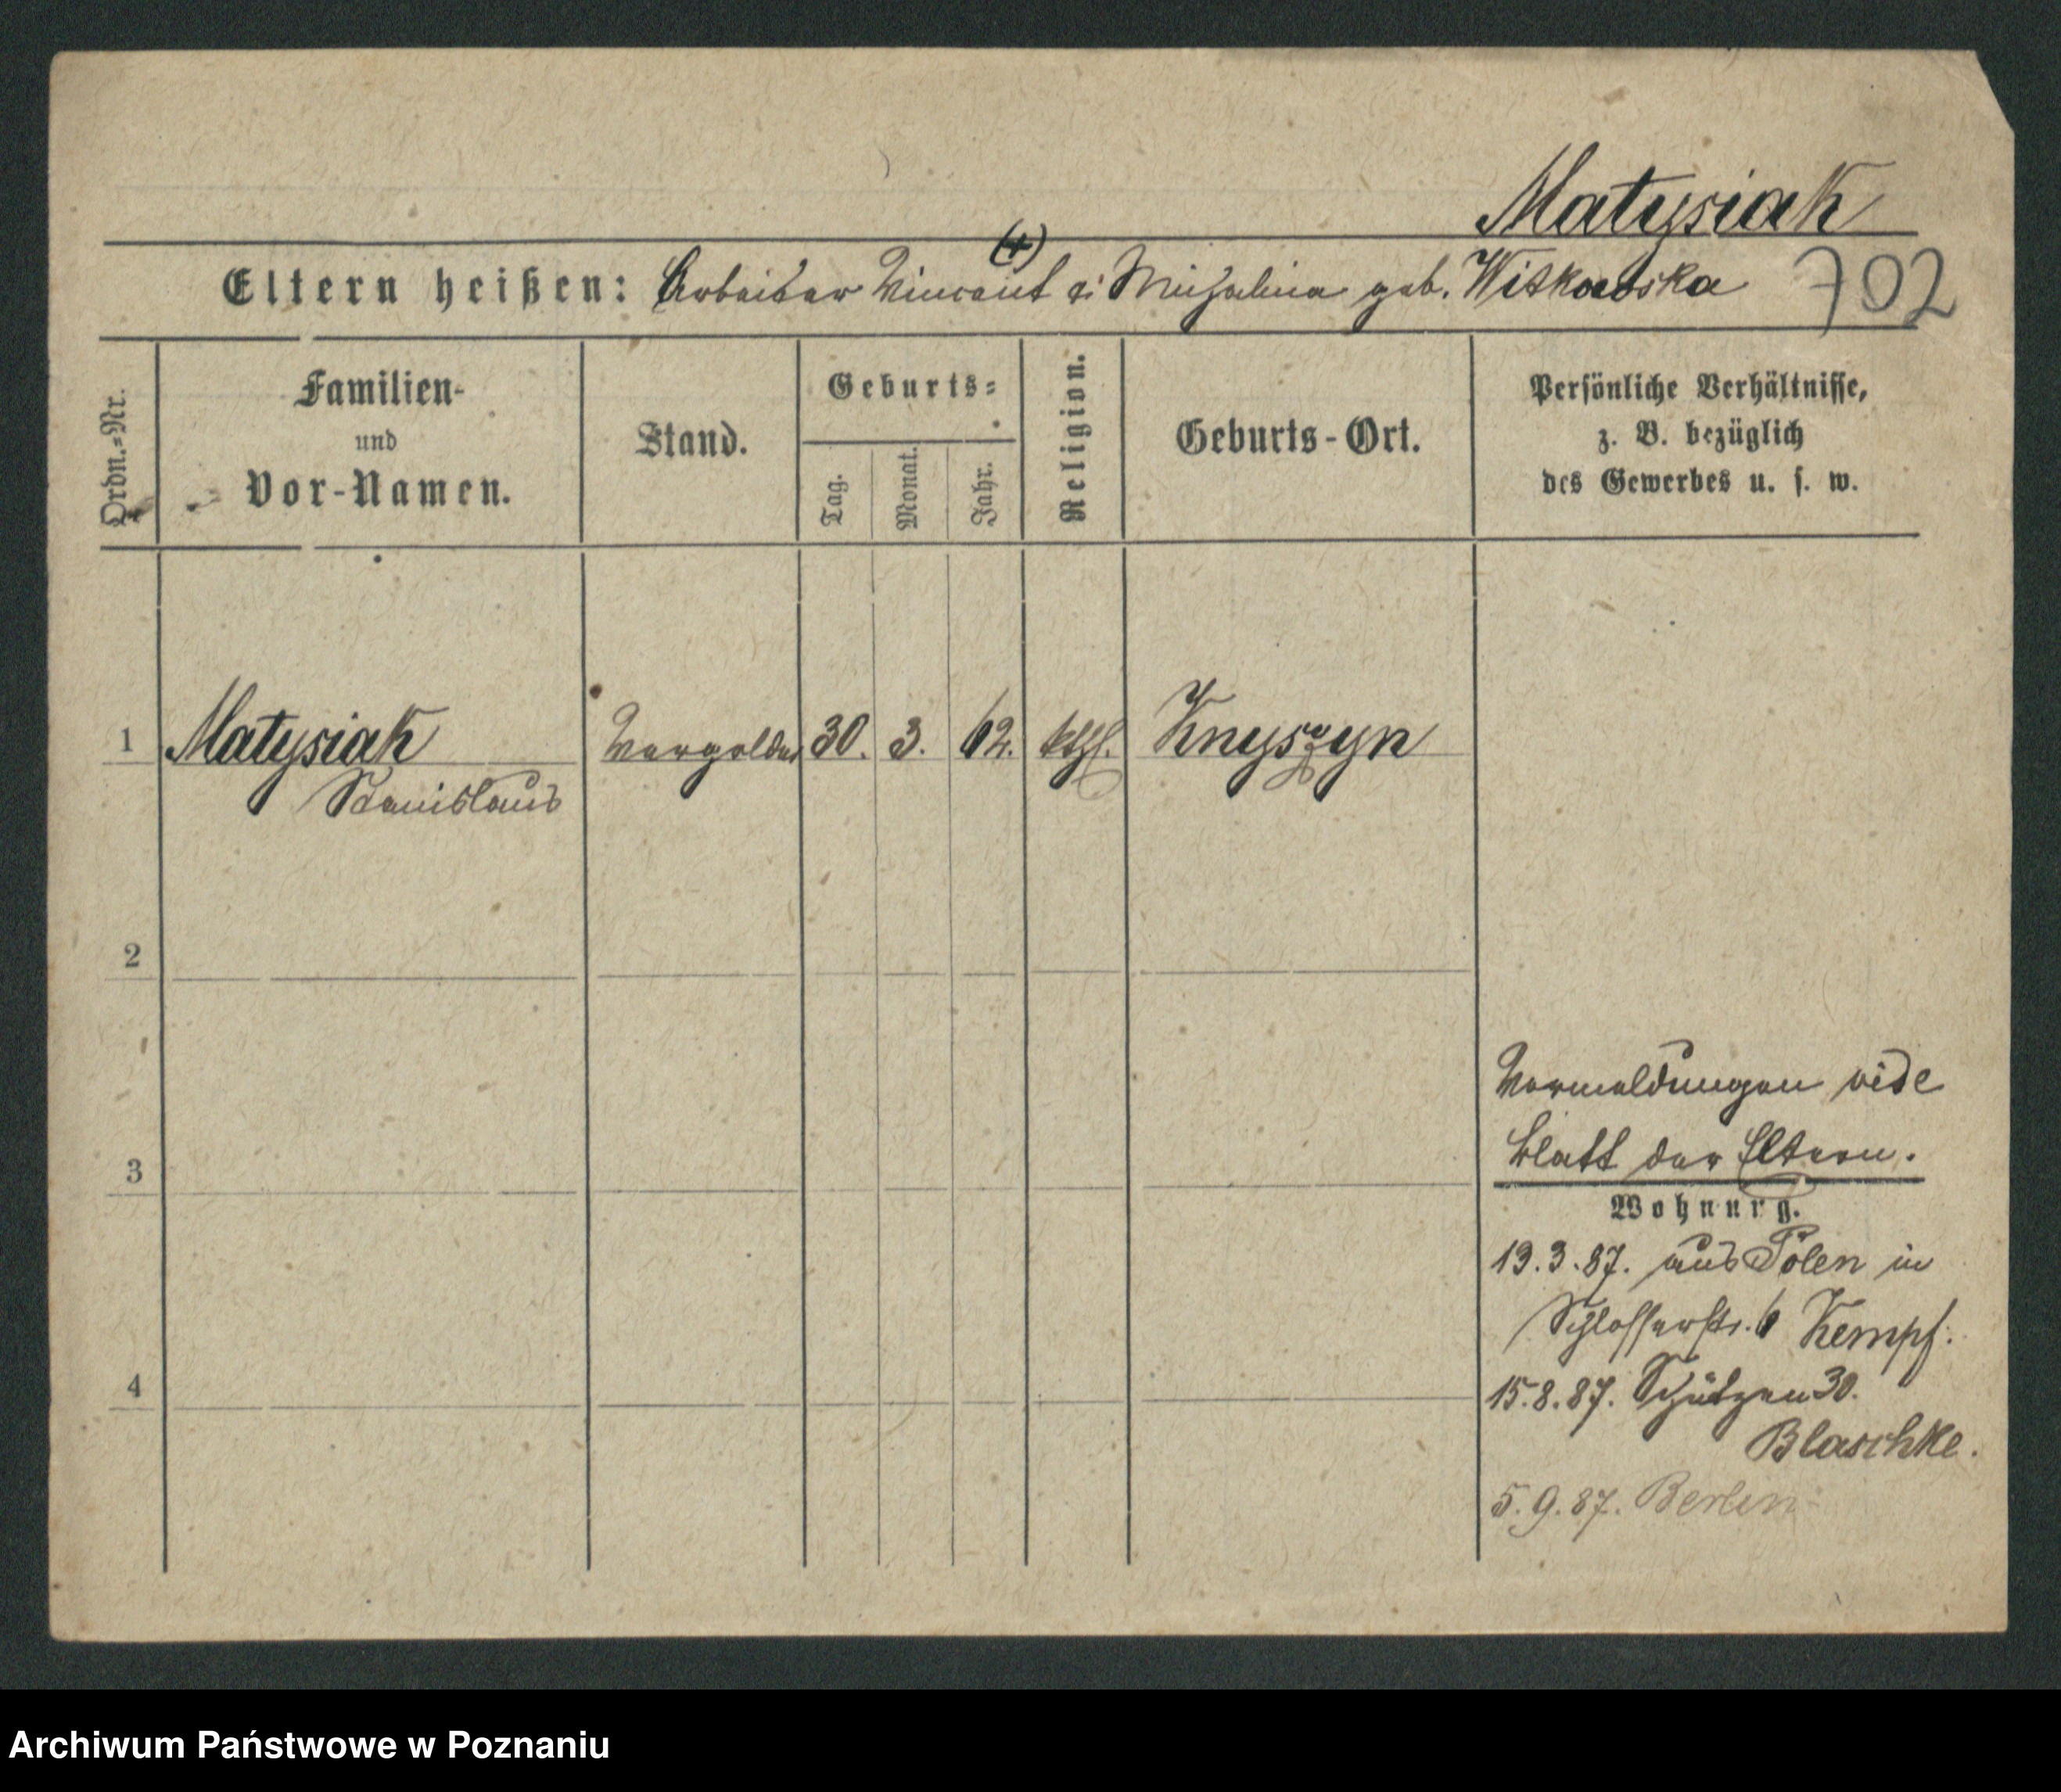 Matysiak
(†)
Eltern heißen: Arbeiter Vincent & Michalina geb. Witkowska 702
Ordn.=Nr.
Familien-
und
Vor-Namen.
Stand.
Geburts=
Tag.
Monat.
Jahr.
Religion.
Geburts-Ort.
Persönliche Verhältnisse,
z. B. bezüglich
des Gewerbes u. s. w.
1 Matysiak Vergolder 30. 3. 62. kthl. Knyszyn
Stanislaus
2
3
4
Vormeldungen vide
Blatt der Eltern.
Wohnung.
19.3.87. aus Polen in
Schlosserstr. 6 Kempf.
15.8.87. Schützen 30.
Blaschke.
5.9.87. Berlin
Archiwum Państwowe w Poznaniu